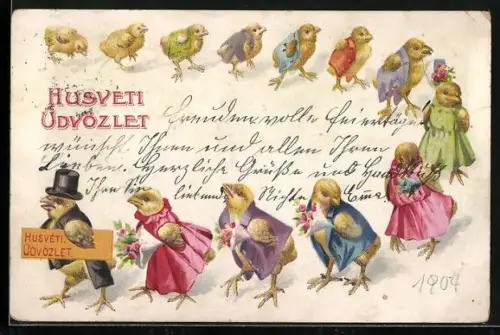 HUSVÉTI
ÜDVÖZLET
Freudenvolle Feiertage
wünscht Ihnen und allen Ihren
Lieben. Herzliche Grüße und Handkuß
Ihre Sie liebende Nichte
HUSVÉTI
ÜDVÖZLET.
1904